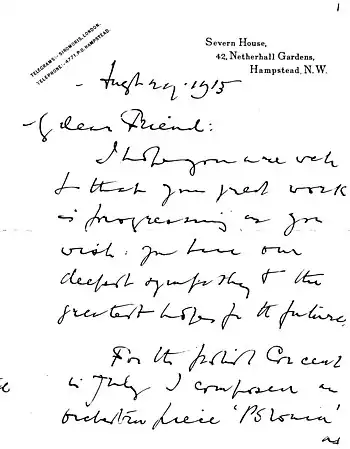 1
TELEGRAMS:- SINGWORIS, LONDON.
TELEPHONE:- 4771, P.O. HAMPSTEAD.
Severn House,
42, Netherhall Gardens,
Hampstead, N.W.
1915
My dear Friend:
I hope you are well
& that your great work
is progressing as you
wish: you have our
deepest sympathy & the
greatest hopes for the future.
For the Polish Concert
in July I composed an
orchestral piece 'Polonia'
as